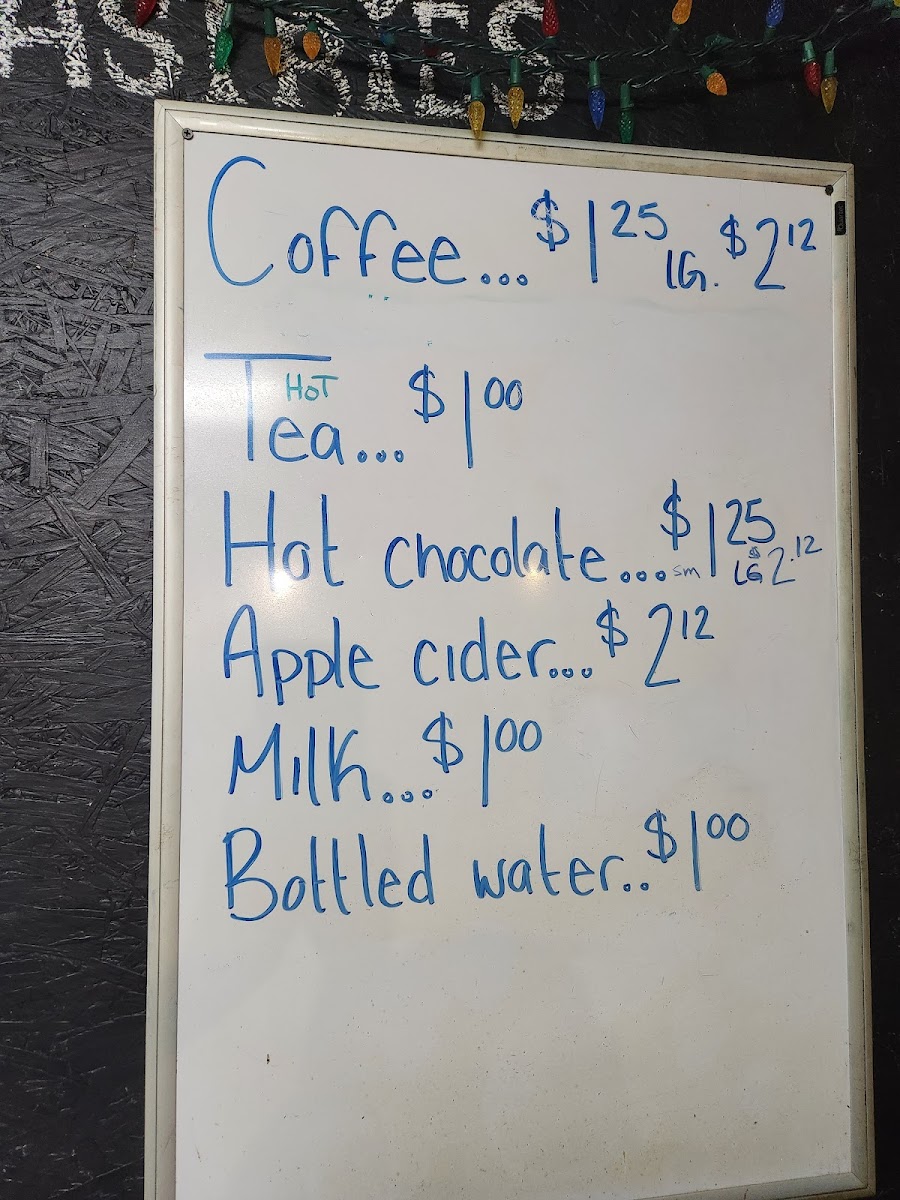 Coffee...$1 25 LG. $2 12
Hot
Tea...$1 00
Hot chocolate...sm $1 25
LG $2.12
Apple cider...$2 12
Milk...$1 00
Bottled water..$1 00